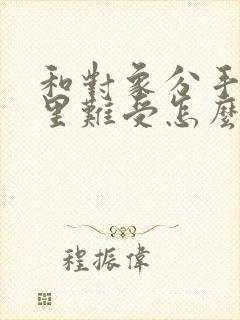 和對象分手
里難受怎麼
程振偉